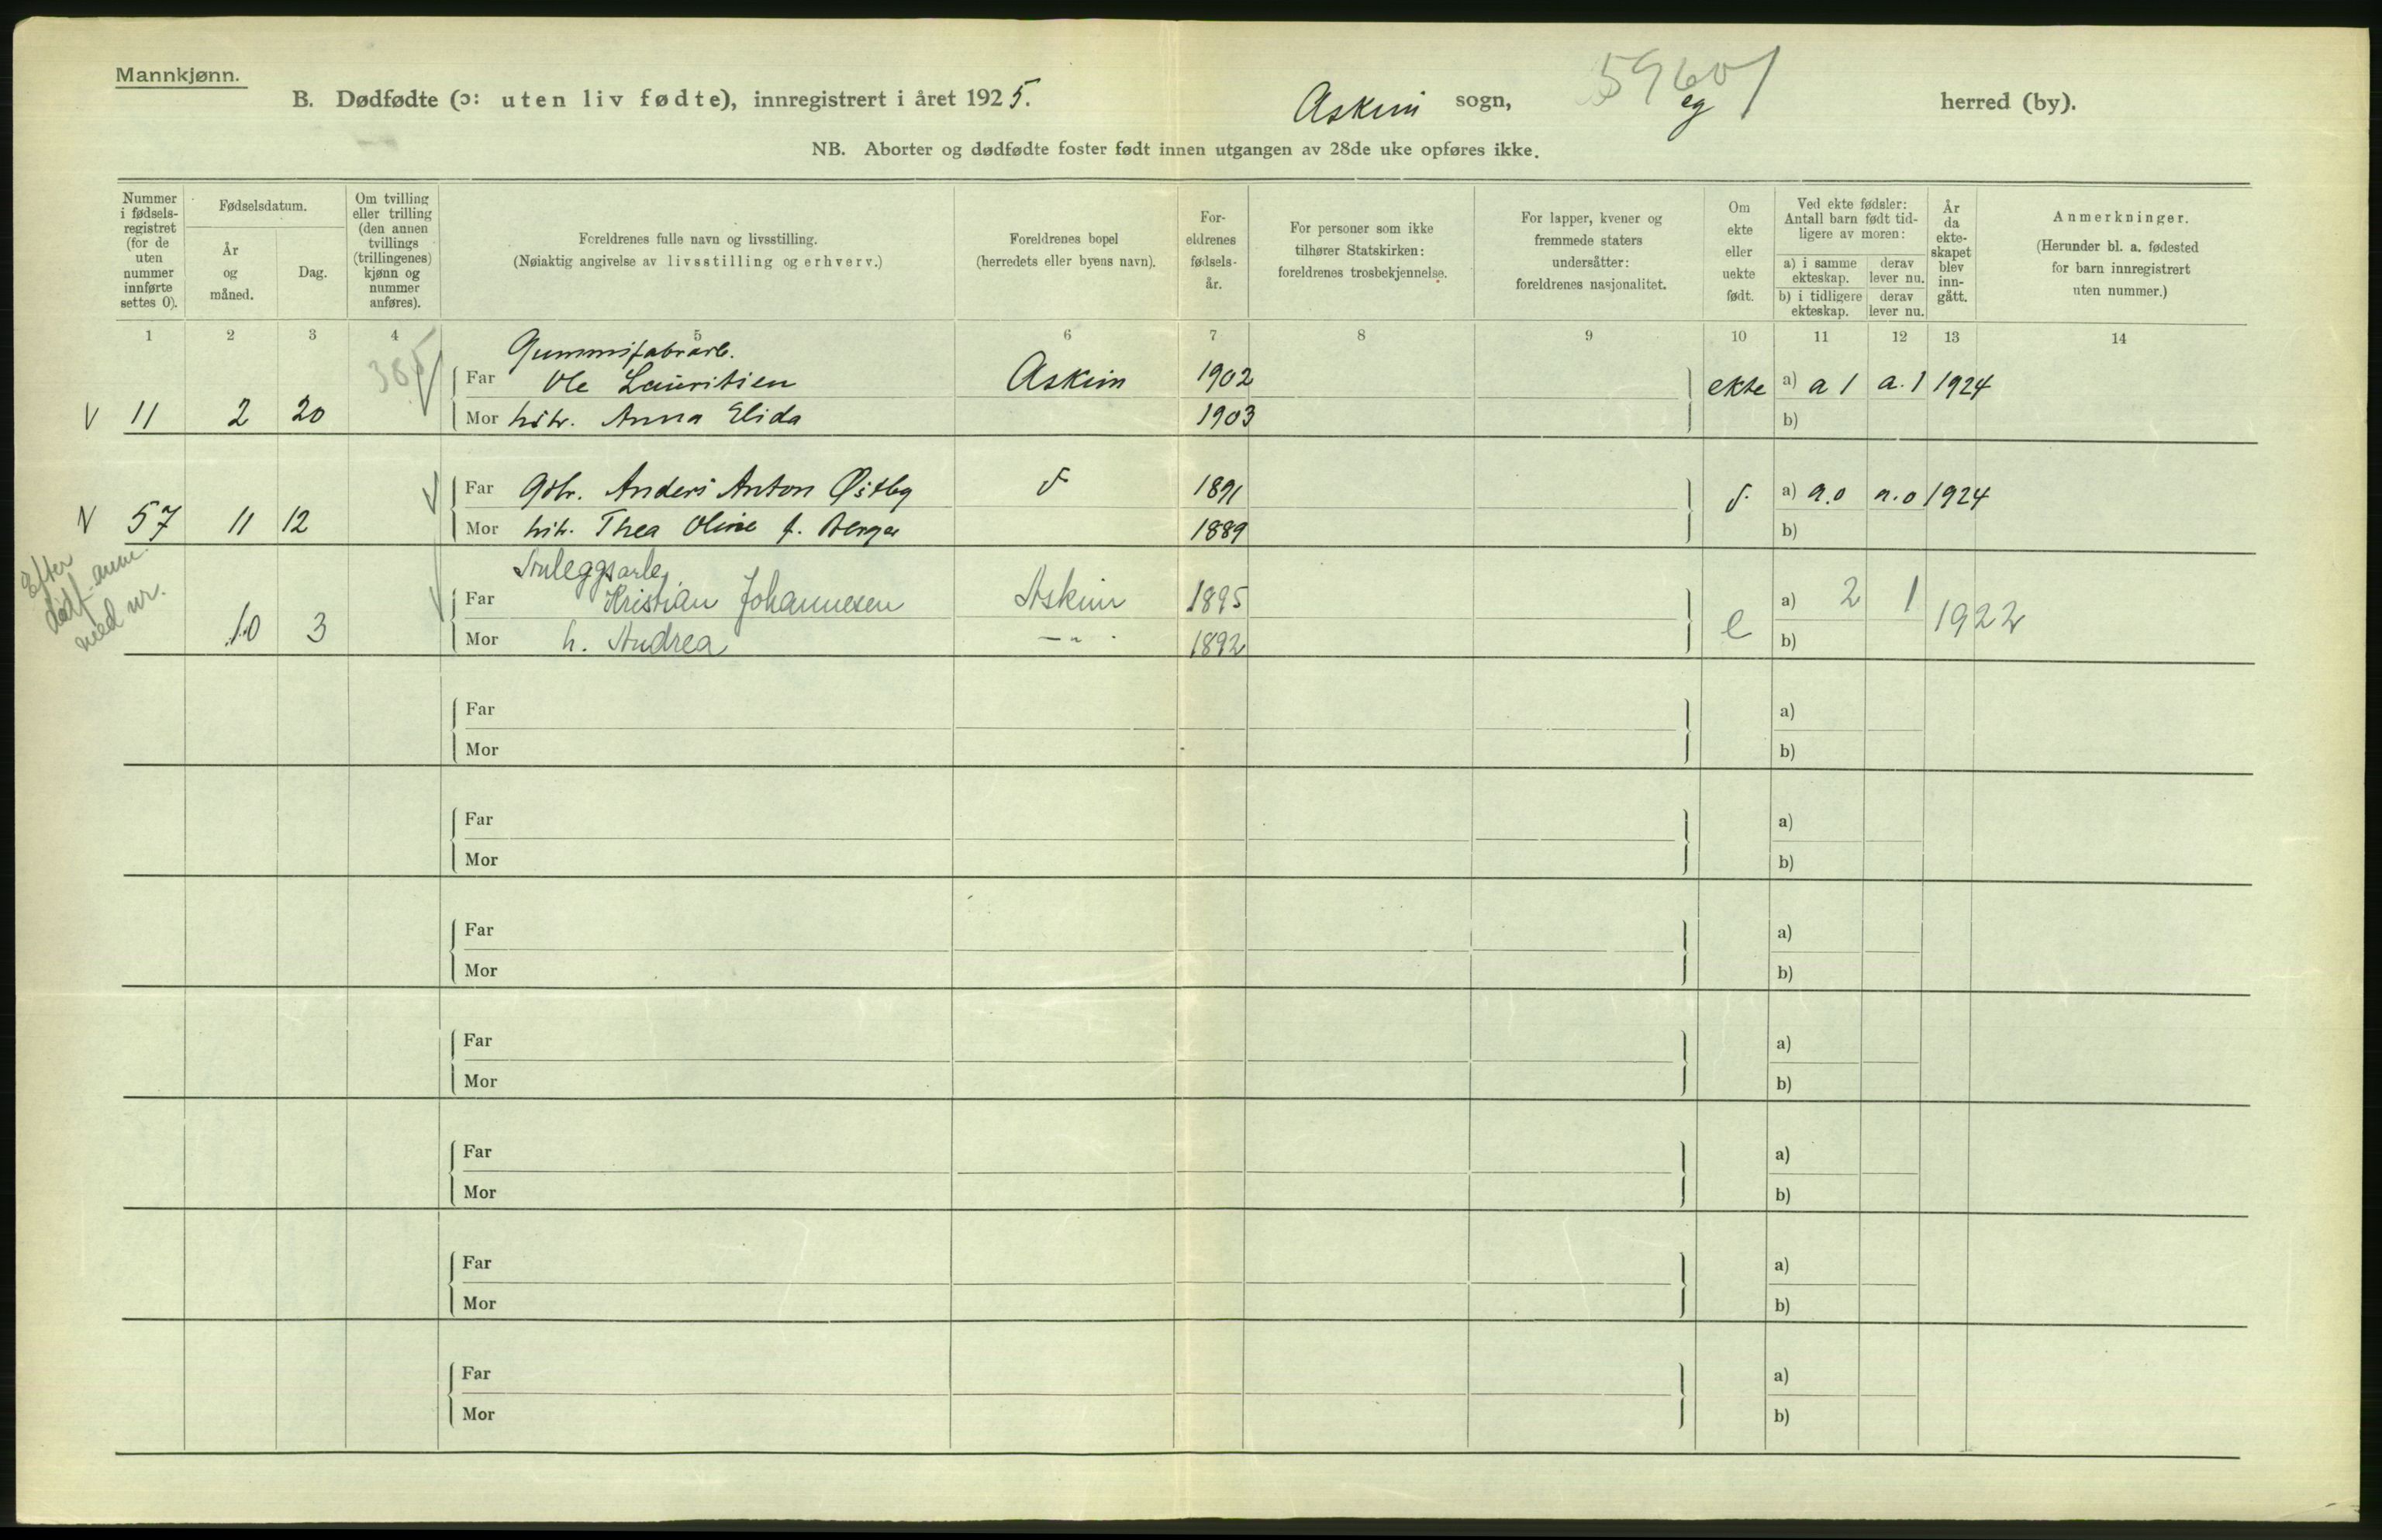 Mannkjønn.
B. Dødfødte (ɔ: uten liv fødte), innregistrert i året 1925. Askim sogn, 59601 eg herred (by).
NB. Aborter og dødfødte foster født innen utgangen av 28de uke opføres ikke.
Nummer i fødsels-registret (for de uten nummer innførte settes 0).
Fødselsdatum.
År og måned.
Dag.
Om tvilling eller trilling (den annen tvillings (trillingenes) kjønn og nummer anføres).
Foreldrenes fulle navn og livsstilling.
(Nøiaktig angivelse av livsstilling og erhverv.)
Foreldrenes bopel
(herredets eller byens navn).
For-eldrenes fødsels-år.
For personer som ikke tilhører Statskirken: foreldrenes trosbekjennelse.
For lapper, kvener og fremmede staters undersåtter: foreldrenes nasjonalitet.
Om ekte eller uekte født.
Ved ekte fødsler: Antall barn født tid-ligere av moren:
a) i samme ekteskap. derav lever nu.
b) i tidligere ekteskap. derav lever nu.
År da ekte-skapet blev inn-gått.
Anmerkninger.
(Herunder bl. a. fødested for barn innregistrert uten nummer.)
1 2 3 4 5 6 7 8 9 10 11 12 13 14
Gummifabrarb.
Far Ole Lauritsen Askim 1902 ekte a) a 1 a. 1 1924
V 11 2 20 Mor hstr. Anna Elida 1903 b)
Far Gbr. Anders Anton Østby 1891 a) a.0 a.0 1924
V 57 11 12 Mor hstr. Thea Oline f. Berger 1889 b)
Efter
dødf. anm.
med nr.
Anleggsarb.
Far Kristian Johannesen Askim 1895 e a) 2 1 1922
10 3 Mor h. Andrea —"— 1892 b)
Far a)
Mor b)
Far a)
Mor b)
Far a)
Mor b)
Far a)
Mor b)
Far a)
Mor b)
Far a)
Mor b)
Far a)
Mor b)